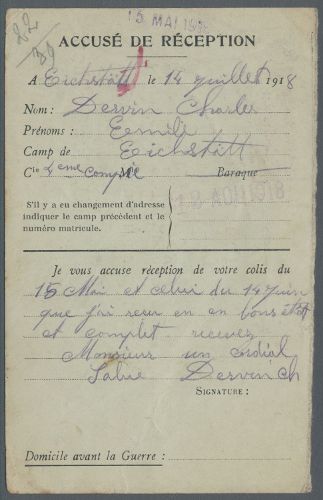 15 MAI
22/39
ACCUSÉ DE RÉCEPTION
A Eichstätt le 14 juillet 1918
Nom : Dervin Charles
Prénoms : Eemile
Camp de Eichstätt
Cie 4eme Compie Mle Baraque
12 AOU 1918
S'il y a eu changement d'adresse
indiquer le camp précédent et le
numéro matricule.
Je vous accuse réception de votre colis du
15 Mai et celui du 14 Juin
que j'ai reçu en en bons état
et complet recevez
Monsieur un cordial
Salue Dervin Ch
SIGNATURE :
Domicile avant la Guerre :